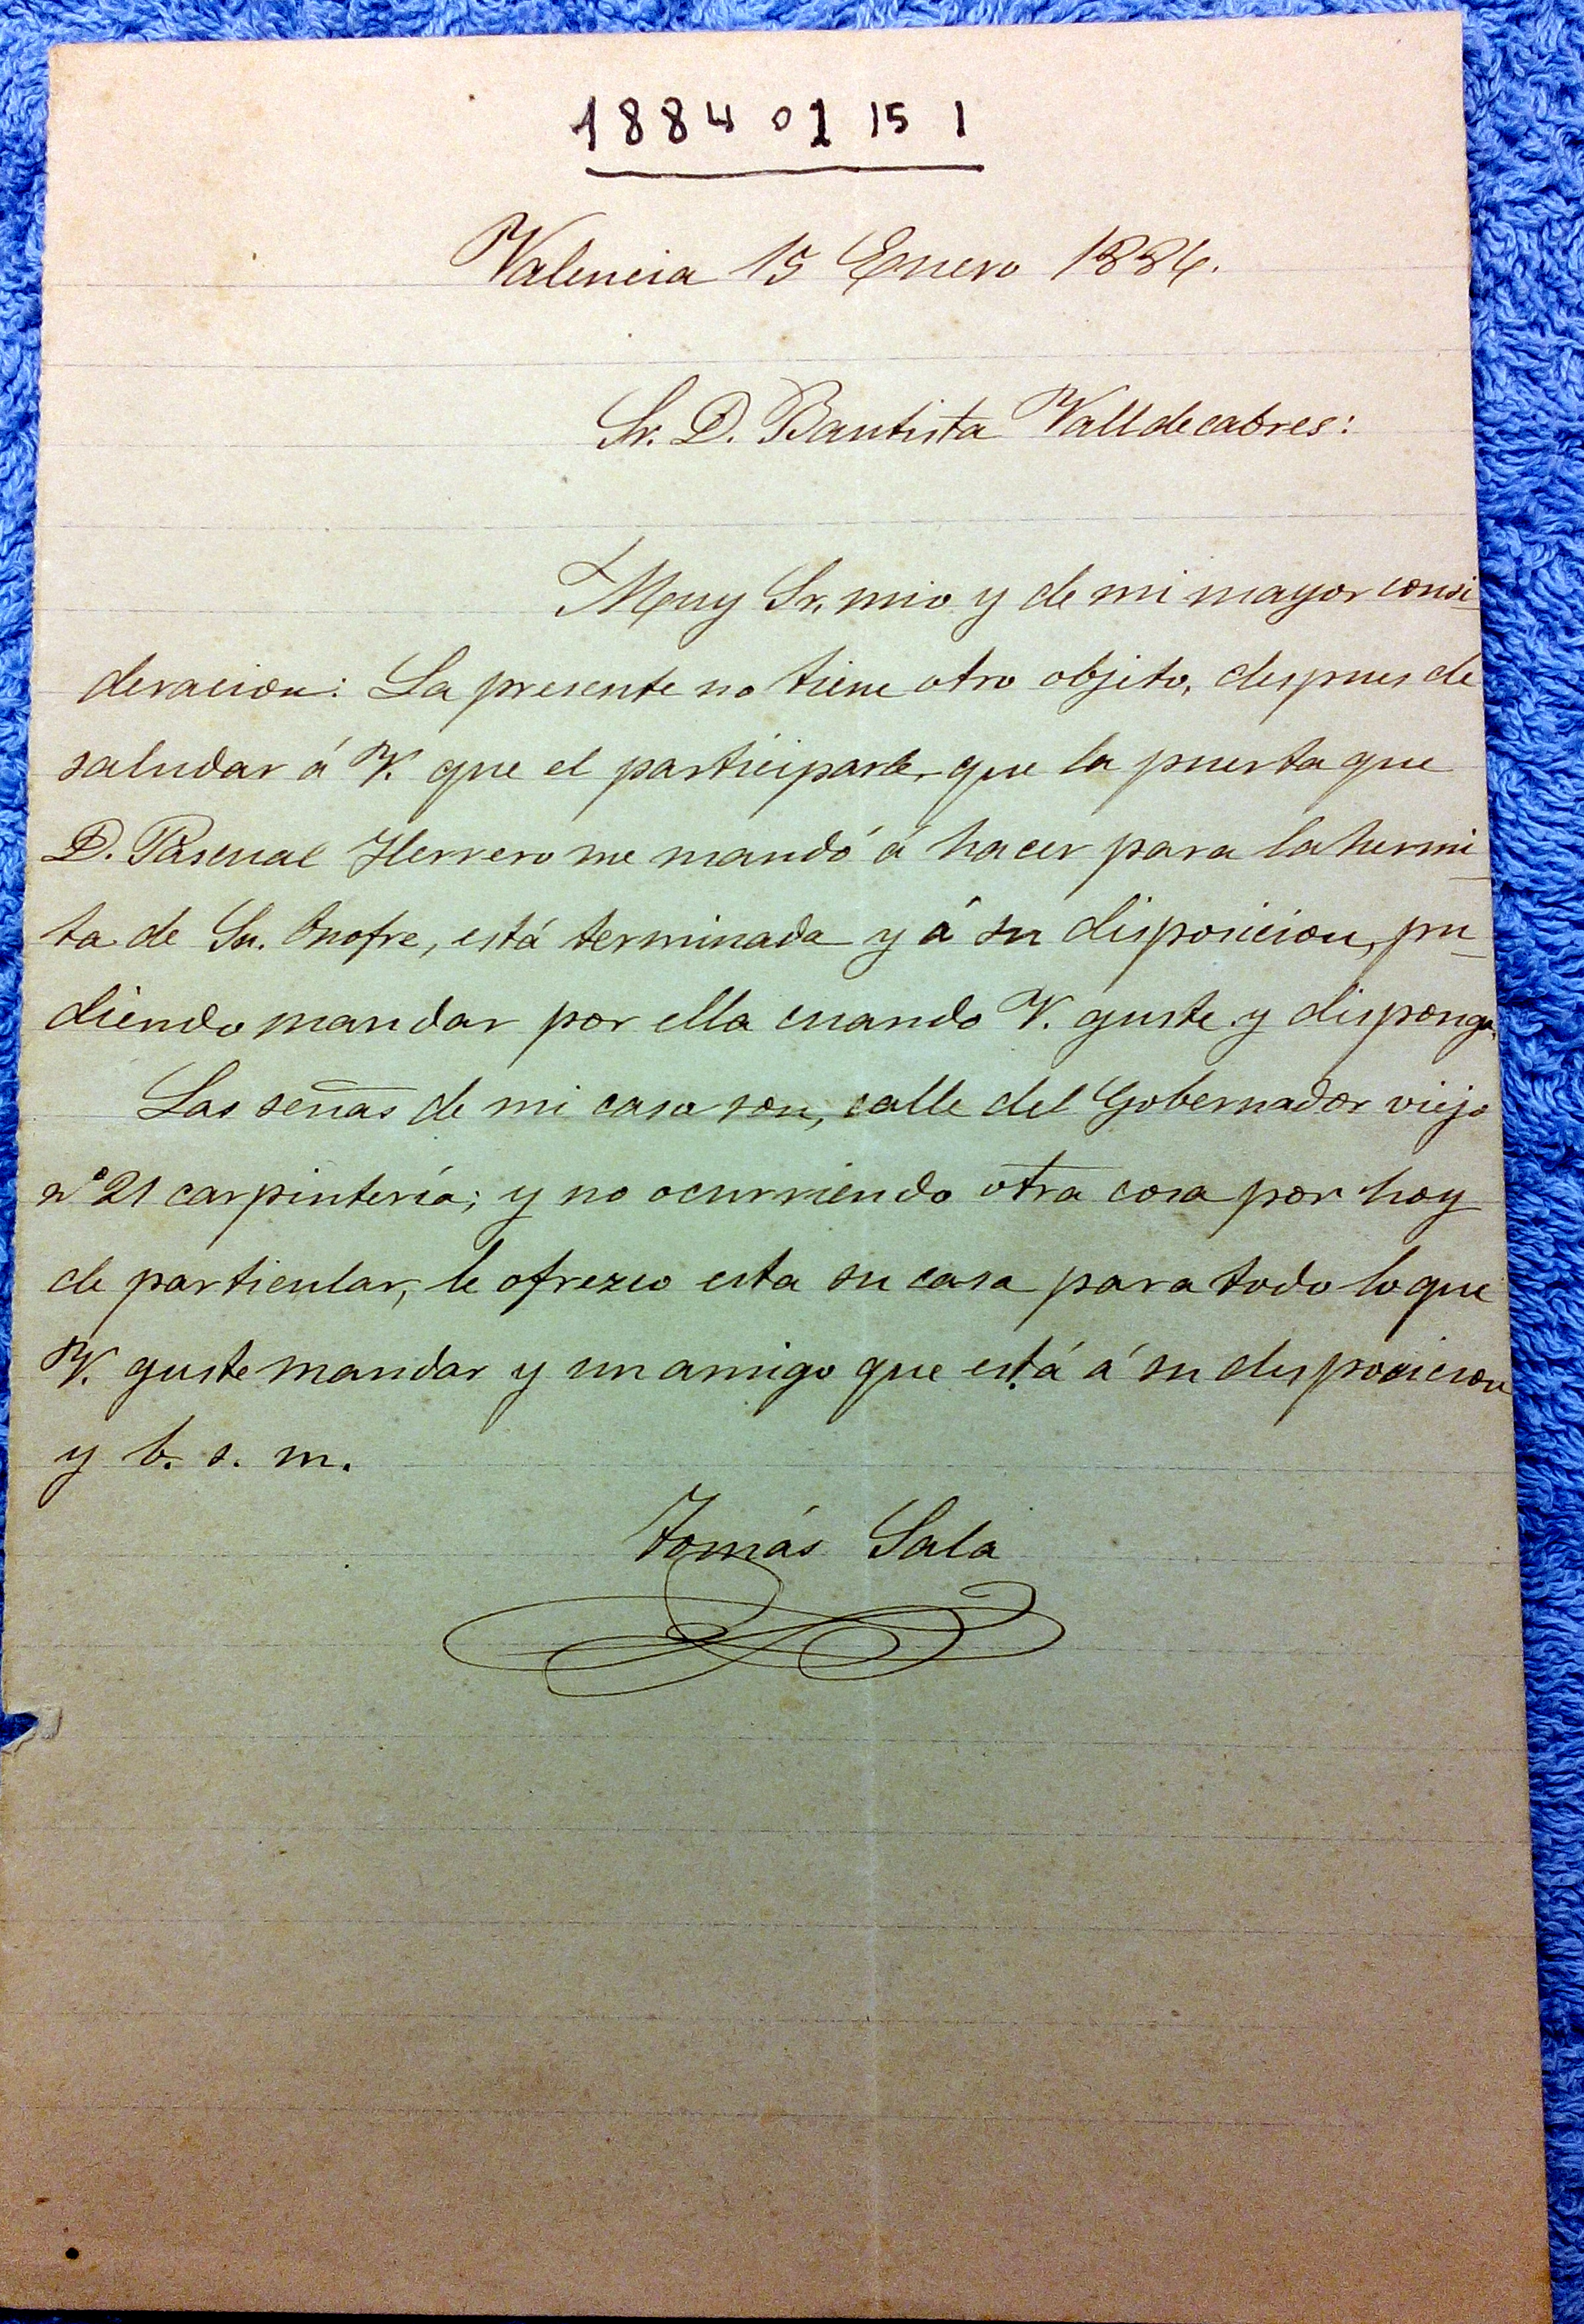 1884 01 15 1
Valencia 15 Enero 1884.
Sr. D. Bautista Valldecabres:
Muy Sr. mio y de mi mayor consi
deracion: La presente no tiene otro objeto, despues de
saludar á V. que el participarle, que la puerta que
D. Pascual Herrero me mandó á hacer para la hermi
ta de Sn. Onofre, está terminada y á su disposicion, pu
diendo mandar por ella cuando V. guste y disponga.
Las señas de mi casa son, calle del Gobernador viejo
nº 21 carpintería; y no ocurriendo otra cosa por hoy
de particular, le ofrezco esta su casa para todo lo que
V. guste mandar y un amigo que está á su disposicion
y b. s. m.
Tomás Sala